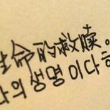 生命的救赎。
나의 생명이다 하